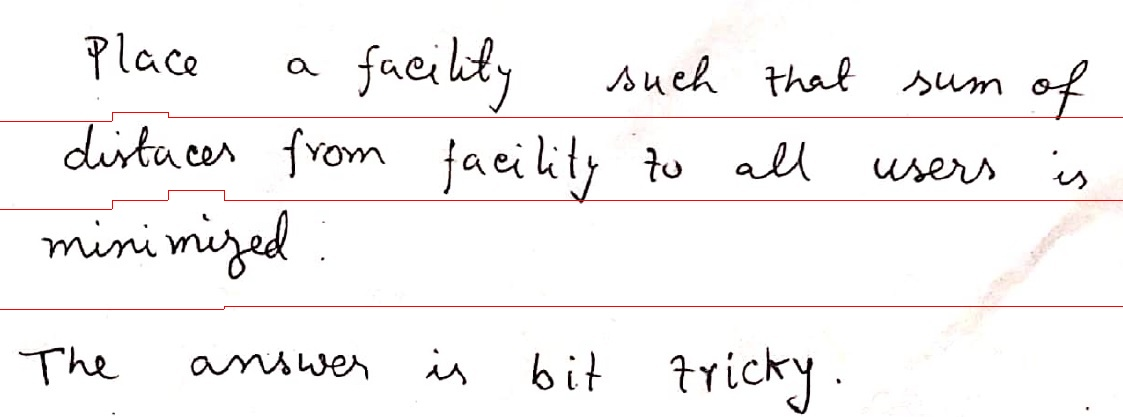 Place a facility such that sum of
distaces from facility to all users is
minimized.
The answer is bit tricky.